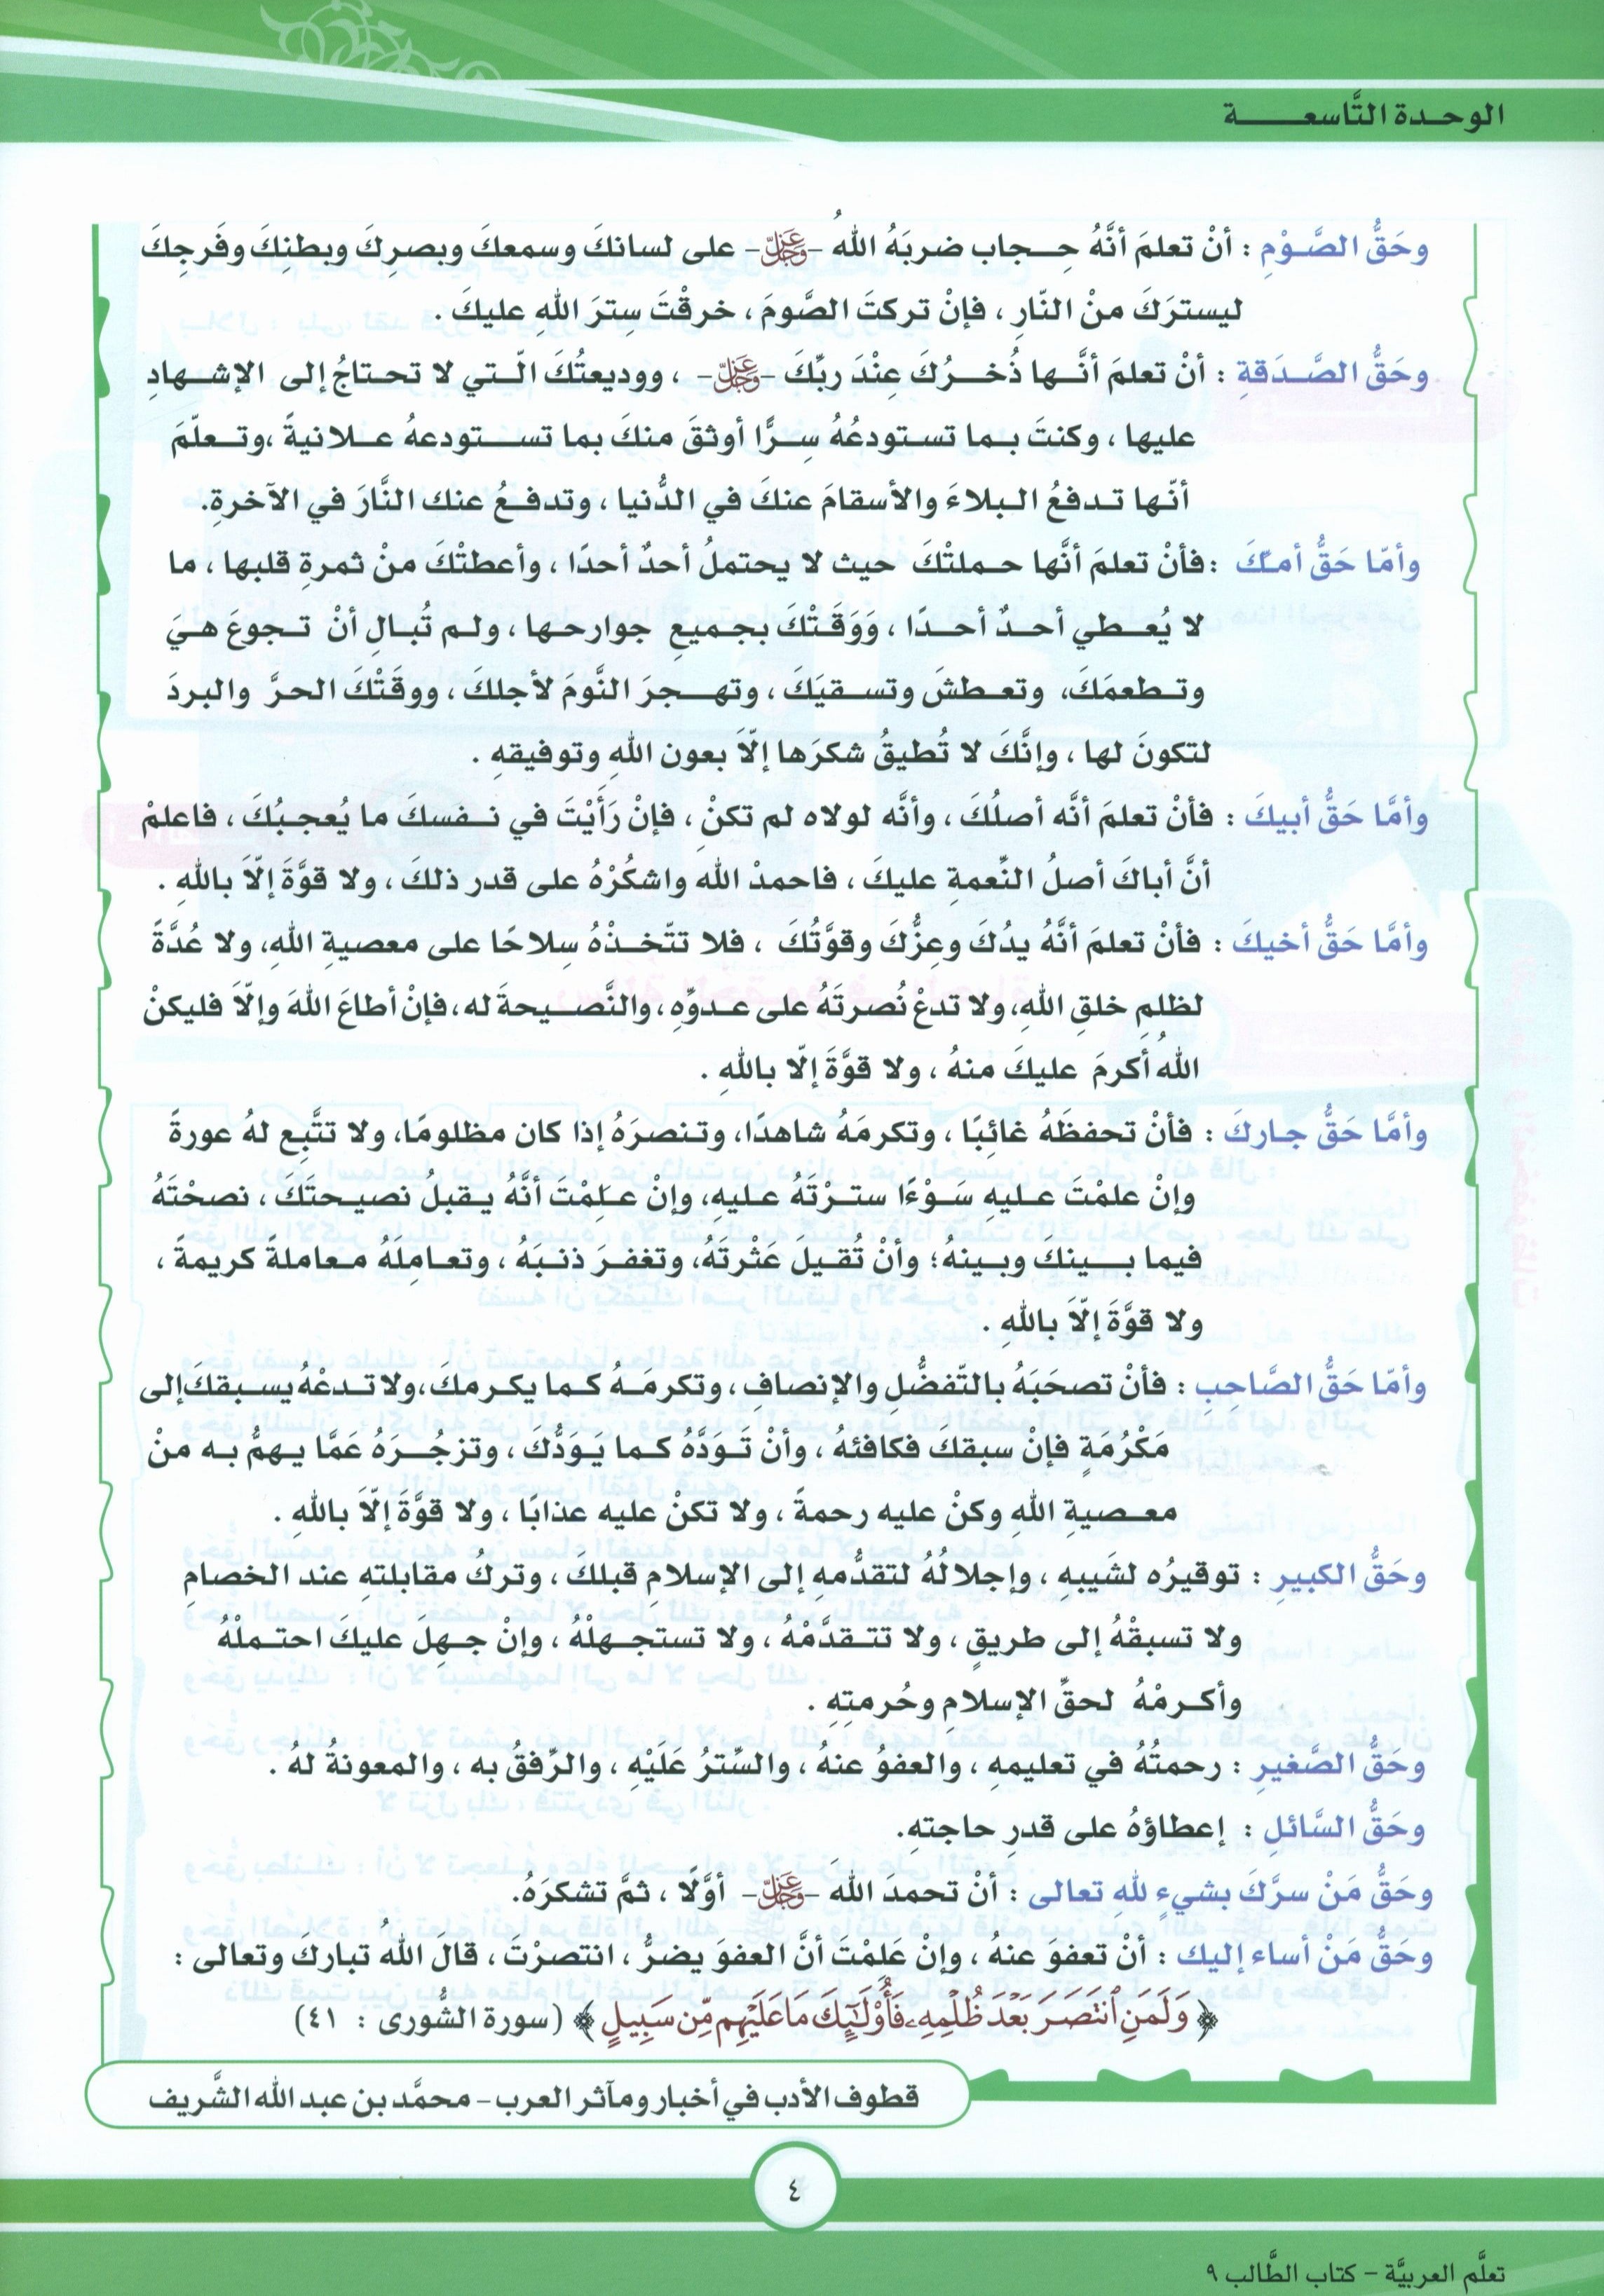 الوحدة التَّاسعة
وحَقُّ الصَّوْمِ : أنْ تعلمَ أنَّهُ حِجاب ضربَهُ اللهُ -عَزَّ وَجَلَّ- على لسانكَ وسمعكَ وبصرِكَ وبطنِكَ وفَرجِكَ
ليسترَكَ منْ النّارِ ، فإنْ تركتَ الصَّومَ ، خرقْتَ سِترَ اللهِ عليكَ .
وحَقُّ الصَّدَقةِ : أنْ تعلمَ أنَّها ذُخرُكَ عِنْدَ ربِّكَ -عَزَّ وَجَلَّ- ، ووديعتُكَ الّتي لا تحتاجُ إلى الإشهادِ
عليها ، وكنتَ بما تستودعُهُ سِرًّا أوثقَ منكَ بما تستودعهُ علانيةً ،وتعلّمَ
أنّها تدفعُ البلاءَ والأسقامَ عنكَ في الدُّنيا ، وتدفعُ عنك النَّارَ في الآخرةِ.
وأمّا حَقُّ أمّكَ : فأنْ تعلمَ أنَّها حملتْكَ حيث لا يحتملُ أحدٌ أحدًا ، وأعطتْكَ منْ ثمرةِ قلبها ، ما
لا يُعطي أحدٌ أحدًا ، وَوَقَتْكَ بجميعِ جوارحها ، ولم تُبالِ أنْ تجوعَ هيَ
وتطعمَكَ، وتعطشَ وتسقيَكَ ، وتهجرَ النَّومَ لأجلكَ ، ووقَتْكَ الحرَّ والبردَ
لتكونَ لها ، وإنَّكَ لا تُطيقُ شكرَها إلّاَ بعون اللهِ وتوفيقهِ .
وأمَّا حَقُّ أبيكَ : فأنْ تعلمَ أنَّه أصلُكَ ، وأنَّه لولاه لم تكنْ ، فإنْ رَأَيْتَ في نفسكَ ما يُعجبُكَ ، فاعلمْ
أنَّ أباكَ أصلُ النِّعمةِ عليكَ ، فاحمدْ الله واشكُرْهُ على قدر ذلكَ ، ولا قوَّةَ إلّاَ باللهِ .
وأمَّا حَقُّ أخيكَ : فأنْ تعلمَ أنَّهُ يدُكَ وعِزُّكَ وقوَّتُكَ ، فلا تتّخذْهُ سِلاحًا على معصيةِ اللهِ، ولا عُدَّةً
لظلمِ خلقِ اللهِ، ولا تدعْ نُصرتَهُ على عدوِّهِ، والنَّصيحةَ له، فإنْ أطاعَ اللهَ وإلّاَ فليكنْ
اللهُ أكرمَ عليكَ منهُ ، ولا قوَّةَ إلّا باللهِ .
وأمَّا حَقُّ جاركَ : فأنْ تحفظَهُ غائبًا ، وتكرمَهُ شاهدًا، وتنصرَهُ إذا كان مظلومًا، ولا تتَّبِع لهُ عورةً
وإنْ علمْتَ عليهِ سَوْءًا سترْتَهُ عليهِ، وإنْ عَلِمْتَ أنَّهُ يقبلُ نصيحتَكَ ، نصحْتَهُ
فيما بينكَ وبينهُ؛ وأنْ تُقيلَ عَثْرتَهُ، وتغفرَ ذنبَهُ ، وتعامِلَهُ معاملةً كريمةً ،
ولا قوَّةَ إلّاَ باللهِ .
وأمّا حَقُّ الصَّاحِبِ : فأنْ تصحَبَهُ بالتّفضُّلِ والإنصافِ، وتكرمَهُ كما يكرمكَ،ولا تدعْهُ يسبقكَ إلى
مَكْرُمَةٍ فإنْ سبقكَ فكافئهُ ، وأنْ تَوَدَّهُ كما يَوَدُّكَ ، وتزجُرَهُ عَمَّا يهمُّ به منْ
معصيةِ اللهِ وكنْ عليه رحمةً ، ولا تكنْ عليه عذابًا ، ولا قوَّةَ إلّاَ باللهِ .
وحَقُّ الكبيرِ : توقيرُه لشَيبهِ ، وإجلالُهُ لتقدُّمهِ إلى الإسلامِ قبلكَ ، وتركُ مقابلتهِ عند الخصامِ
ولا تسبقْهُ إلى طريقٍ ، ولا تتقدَّمْهُ ، ولا تستجهلْهُ ، وإنْ جهلَ عليكَ احتملْهُ
وأكرمْهُ لحقِّ الإسلامِ وحُرمتِهِ .
وحَقُّ الصَّغيرِ : رحمتُهُ في تعليمهِ ، والعفوُ عنهُ ، والسِّترُ عَلَيْهِ ، والرِّفقُ به ، والمعونةُ لهُ .
وحَقُّ السَّائلِ : إعطاؤهُ على قدرِ حاجتهِ.
وحَقُّ مَنْ سرَّكَ بشيءٍ للهِ تعالى : أنْ تحمدَ اللهَ -عَزَّ وَجَلَّ- أوَّلًا ، ثمَّ تشكرَهُ.
وحَقُّ مَنْ أساء إليك : أنْ تعفوَ عنهُ ، وإنْ عَلمْتَ أنَّ العفوَ يضرُّ ، انتصرْتَ ، قالَ اللهُ تباركَ وتعالى :
﴿ وَلَمَنِ ٱنتَصَرَ بَعْدَ ظُلْمِهِۦ فَأُوْلَٰٓئِكَ مَا عَلَيْهِم مِّن سَبِيلٍ ﴾ (سورة الشُّورى : ٤١)
قطوف الأدب في أخبار ومآثر العرب - محمَّد بن عبد الله الشَّريف
٤
تعلَّم العربيَّة - كتاب الطَّالب ٩